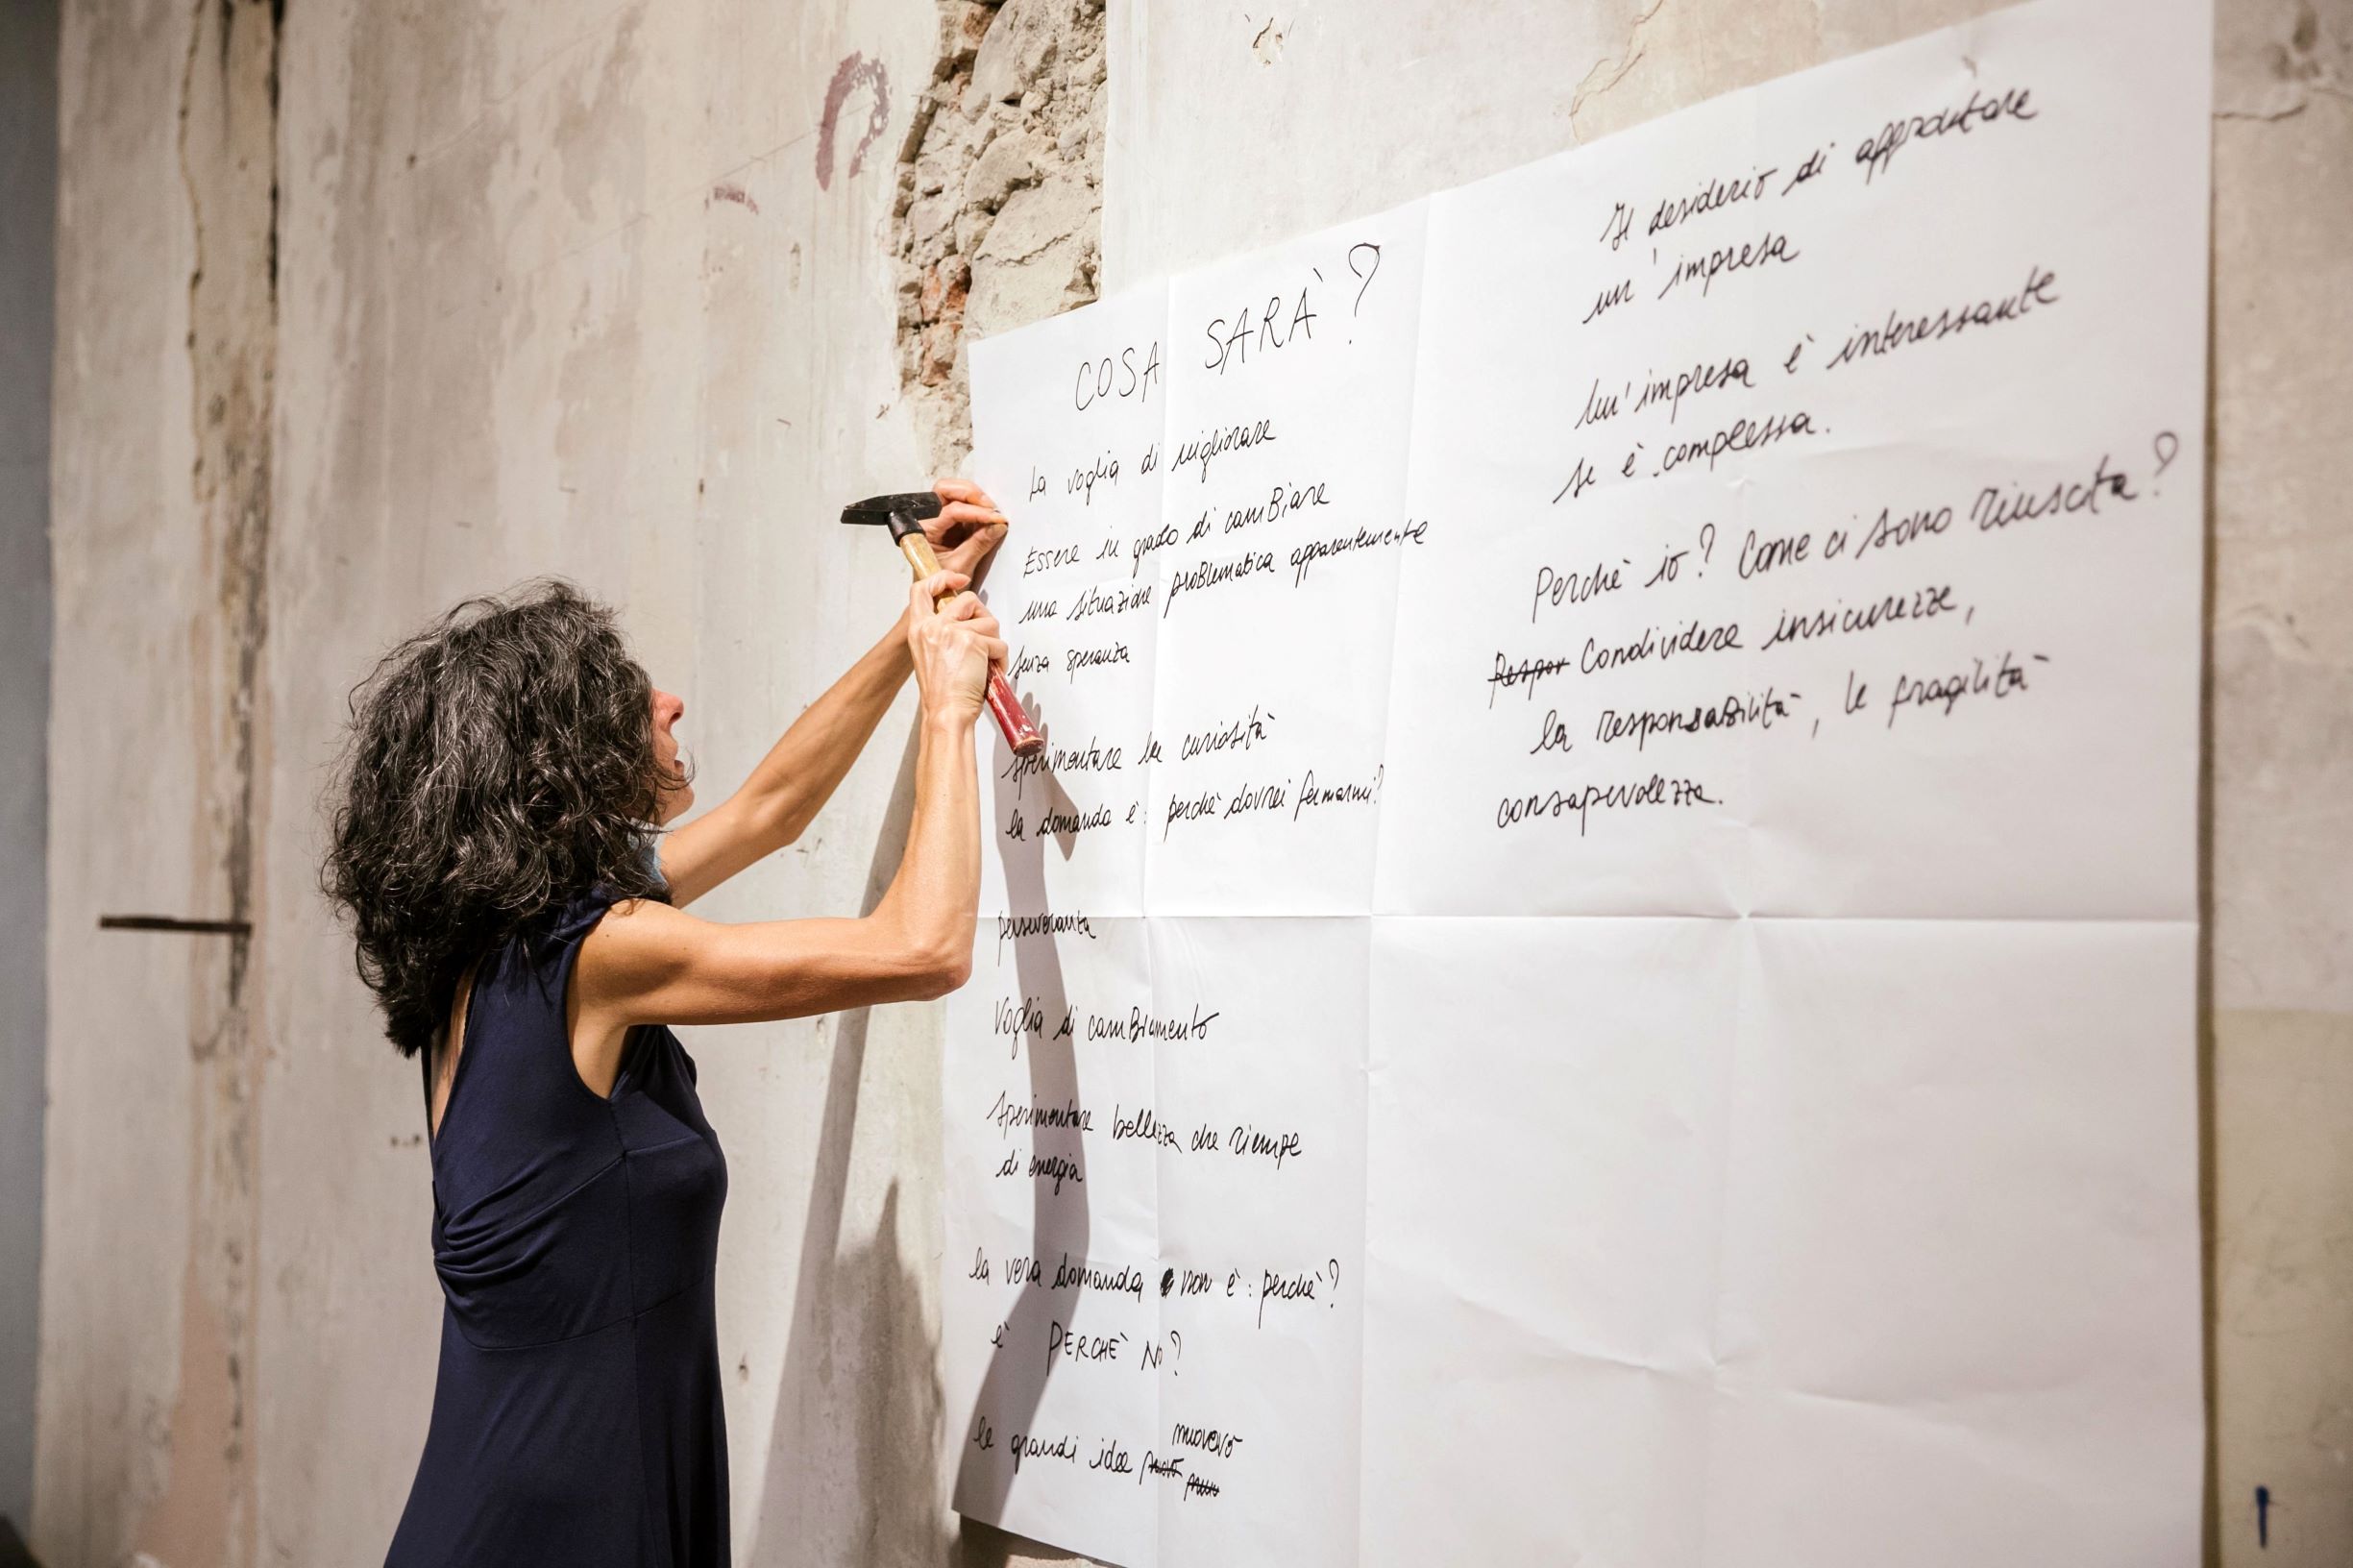 COSA SARÀ?
La voglia di migliorare
Essere in grado di camBiare
una situazione proBlematica apparentemente
senza speranza
sperimentare la curiosità
la domanda è: perchè dovrei fermarmi?
perseveranza
Voglia di camBiamento
Sperimentare bellezza che riempe
di energia
la vera domanda non è: perchè?
è PERCHÈ NO?
le grandi idee
nuovovò
Il desiderio di affrontare
un'impresa
Un'impresa è interessante
se è complessa.
Perchè io? Come ci sono riuscita?
Respon Condividere insicurezze,
la responsaBilità, le fragilità
consapevolezza.